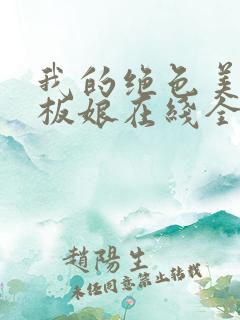 我的绝色美
板娘在线全
趙陽生
未经同意禁止转载